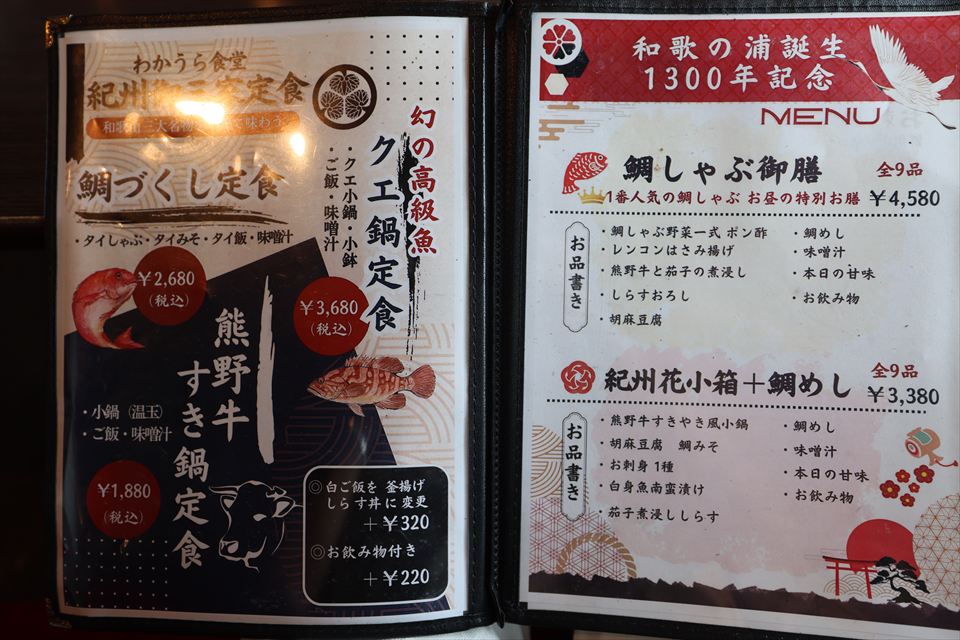 わかうら食堂
紀州
定食
和歌山三大名物
て味わう
鯛づくし定食
・タイしゃぶ・タイみそ・タイ飯・味噌汁
￥2,680
(税込)
幻の高級魚
クエ鍋定食
・クエ小鍋・小鉢
・ご飯・味噌汁
￥3,680
(税込)
熊野牛
すき鍋定食
・小鍋（温玉）
・ご飯・味噌汁
￥1,880
(税込)
◎白ご飯を 釜揚げ
しらす丼に変更
＋￥320
◎お飲み物付き
＋￥220
和歌の浦誕生
1300年記念
MENU
鯛しゃぶ御膳
全9品
1番人気の鯛しゃぶ お昼の特別お膳
￥4,580
お品書き
・鯛しゃぶ野菜一式 ポン酢
・レンコンはさみ揚げ
・熊野牛と茄子の煮浸し
・しらすおろし
・胡麻豆腐
・鯛めし
・味噌汁
・本日の甘味
・お飲み物
紀州花小箱＋鯛めし
全9品
￥3,380
お品書き
・熊野牛すきやき風小鍋
・胡麻豆腐 鯛みそ
・お刺身1種
・白身魚南蛮漬け
・茄子煮浸ししらす
・鯛めし
・味噌汁
・本日の甘味
・お飲み物